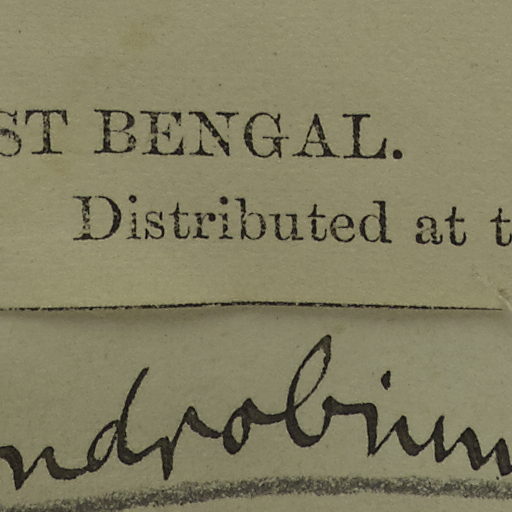 ST BENGAL.
Distributed at t
ndrobium